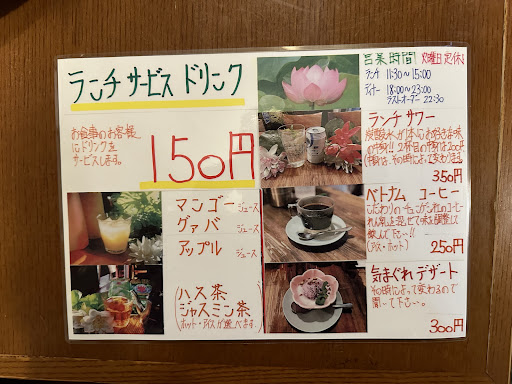 ランチ サービス ドリンク
お食事のお客様
にドリンクを
サービスします。
150円
マンゴージュース
グァバ ジュース
アップル ジュース
ハス茶
ジャスミン茶
(ホット・アイスが選べます)
営業時間 火曜日定休
ランチ 11:30~15:00
ディナー 18:00~23:00
ラストオーダー 22:30
ランチ サワー
350円
ベトナム コーヒー
こだわりの
飲んで下さい!!
(アイス・ホット)
250円
気まぐれ デザート
その時によって変わるので
聞いて下さい。
300円